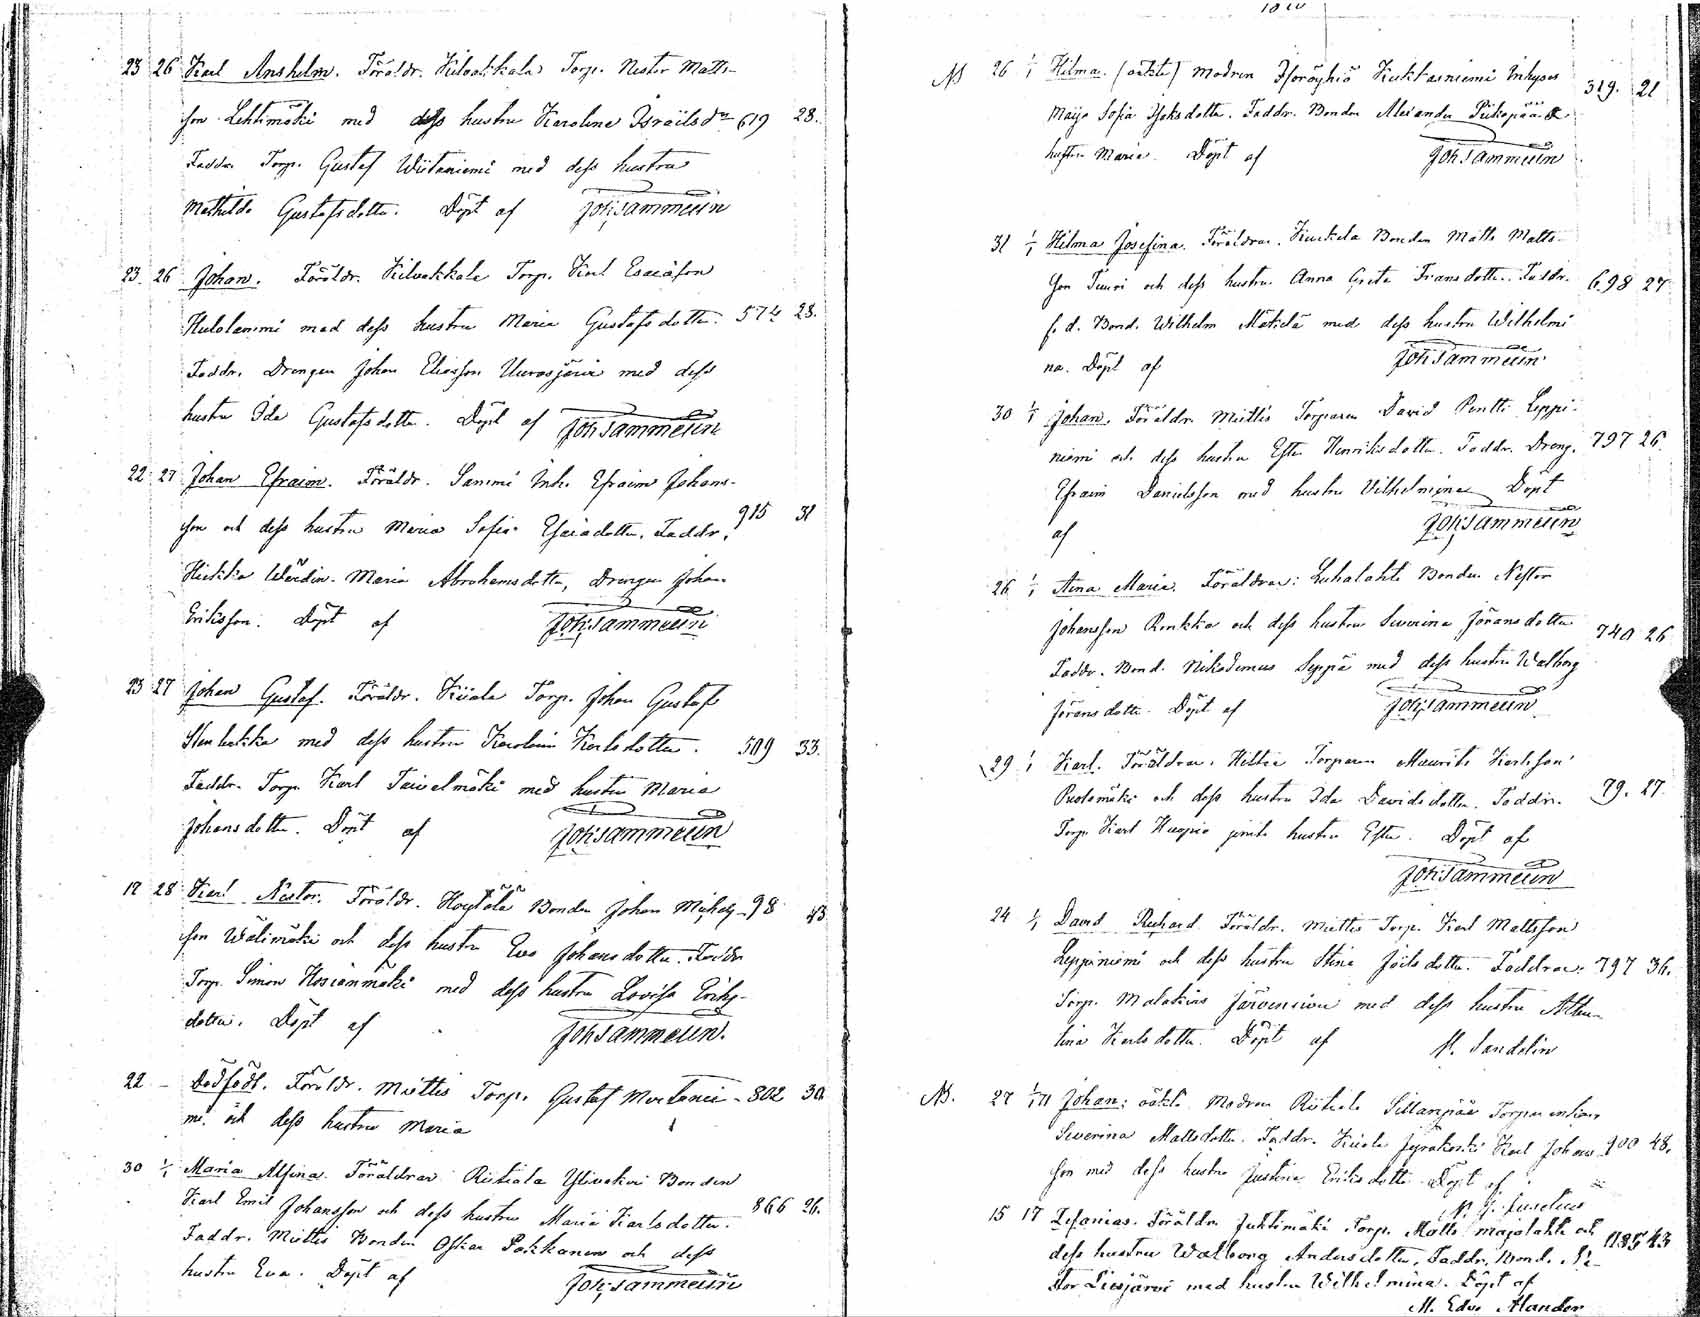 23 26 Karl Anshelm. Föräldr. Kilvakkala Torp. Nestor Matts-
son Lehtimäki med dess hustru Karolina Israilsdr 619 28.
Faddr. Torp. Gustaf Wiitaniemi med dess hustru
Mathilda Gustafsdotter. Döpt af Joh. Sammelin
23. 26 Johan. Föräldr. Kilvakkala Torp. Karl Esaiasson
med dess hustru Maria Gustafsdotter. 574 28.
Faddr. Drengen Johan Eliasson Uurasjärvi med dess
hustru Ida Gustafsdotter. Döpt af Joh. Sammelin
22 27 Johan Efraim. Föräldr. Sammi Inh. Efraim Johans-
son och dess hustru Maria Sofia Esaiadotter. Faddr. 915 31
Maria Abrahamsdotter, Drengen Johan
Eriksson. Döpt af Joh. Sammelin
23 27 Johan Gustaf. Föräldr. Kiiala Torp. Johan Gustaf
med dess hustru Karolina Karlsdotter. 509 33.
Faddr. Torp. Karl Taivalmäki med hustru Maria
Johansdotter. Döpt af Joh. Sammelin
17 28 Karl Nestor. Föräldr. Höytölä Bonden Johan Michels- 98
son Wälimäki och dess hustru Eva Johansdotter. Faddr
Torp. Simon med dess hustru Lovisa Eriks-
dotter. Döpt af Joh. Sammelin.
22 – Dödfödt. Föräldr. Miettis Torp. Gustaf - 802 30.
mi och dess hustru Maria
30 1/1 Maria Alfina. Föräldrar Riitiala Bonden
Karl Emil Johansson och dess hustru Maria Karlsdotter. 866 26.
Faddr. Miettis Bonden Oskar Pakkanen och dess
hustru Eva. Döpt af Joh. Sammelin
NB 26 1/1 Hilma. (oäkta) Modren Kuktasniemi Inhyses
Maija Sofia Isaksdotter. Faddr. Bonden Alexander 319. 21
hustru Maria. Döpt af Joh. Sammelin
31 1/1 Hilma Josefina. Föräldrar. Bonden Matts Matts-
son Tuuri och dess hustru Anna Greta Fransdotter. Faddr. 698 27
f. d. Bond. Wilhelm med dess hustru Wilhelmi
na. Döpt af Joh. Sammelin
30 1/1 Johan. Föräldr. Miettis Torparen David Pentti Leppi-
niemi och dess hustru Ester Henriksdotter. Faddr. Dreng. 797 26.
Efraim Danielsson med hustru Vilhelmina Döpt
af Joh. Sammelin
26 1/1 Aina Maria. Föräldrar: Luhalahti Bonden Nestor
Johansson Ronkka och dess hustru Severina Göransdotter 740 26
Faddr. Bond. Nikodemus Seppä med dess hustru Walborg
Göransdotter. Döpt af Joh. Sammelin
29 1/1 Karl. Föräldrar. Torparen Maurits Karlsson
och dess hustru Ida Davidsdotter. Faddr. 79. 27.
Torp. Karl Huopio jemte hustru Ester. Döpt af
Joh. Sammelin
24 1/1 David Richard. Föräldr. Miettis Torp. Karl Mattsson
Leppiniemi och dess hustru Stina Joelsdotter. Faddrar: 797 36.
Torp. Malakias Järvensivu med dess hustru
tina Karlsdotter. Döpt af M. Sandelin
NB. 27 Johan: oäkta Modren Riitiala Sillanpää
Severina Mattsdotter. Faddr. Kiiala Jyräkoski Karl Johans 900 48.
son med dess hustru Justina Eriksdotter. Döpt af
15 17 Zefanias. Föräldr. Juhtimäki Torp. Matts Majalahti och
dess hustru Walborg Andersdotter, Faddr. Bond. Ne- 1185 43
stor Liesjärvi med hustru Wilhelmina. Döpt af
M. Edv. Alander